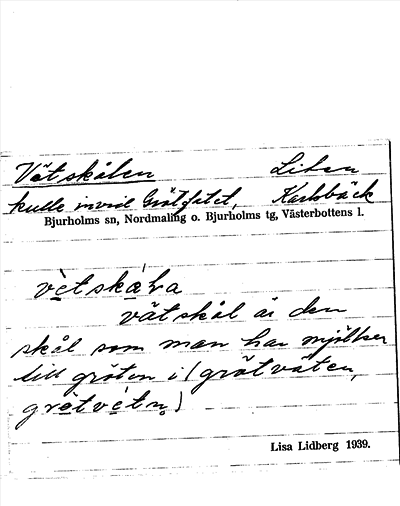 Vätskålen Liten
kulle invid Grötfatet, Karlsbäck
Bjurholms sn, Nordmaling o. Bjurholms tg, Västerbottens l.
vètskàɫa
vätskål är den
skål som man har mjölken
till gröten i (grötväten,
grötvètn̥)
Lisa Lidberg 1939.